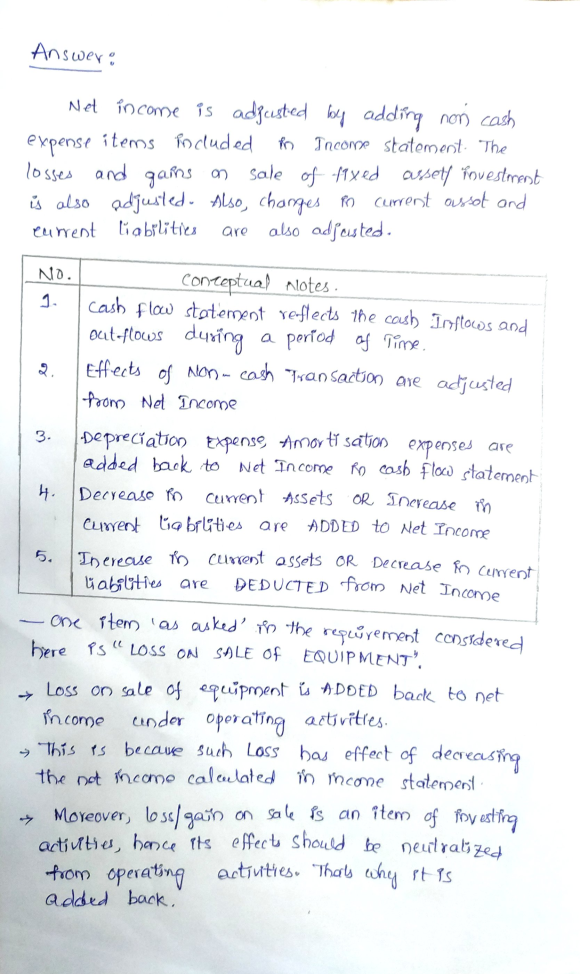 Answer:
Net income is adjusted by adding non cash
expense items included in Income statement. The
losses and gains on sale of fixed asset/ investment
is also adjusted. Also, changes in current asset and
current liabilities are also adjusted.
No. Conceptual Notes.
1. Cash flow statement reflects the cash Inflows and
out-flows during a period of Time.
2. Effects of Non-cash Transaction are adjusted
from Net Income
3. Depreciation Expense, Amortisation expenses are
added back to Net Income in cash flow statement
4. Decrease in current Assets OR Increase in
current liabilities are ADDED to Net Income
5. Increase in current assets OR Decrease in current
liabilities are DEDUCTED from Net Income
— One item 'as asked' in the requirement considered
here is "LOSS ON SALE OF EQUIPMENT".
→ Loss on sale of equipment is ADDED back to net
income under operating activities.
→ This is becaue such Loss has effect of decreasing
the net income calculated in income statement.
→ Moreover, loss/gain on sale is an item of investing
activities, hence its effects should be neutralized
from operating activities. Thats why it is
added back.